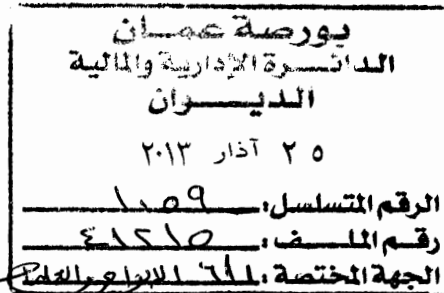 بورصة عمان
الدائرة الإدارية والمالية
الديوان
٢٥ آذار ٢٠١٣
الرقم المتسلسل: ١٠٥٩
رقم الملف: ٤١٢١٥
الجهة المختصة: